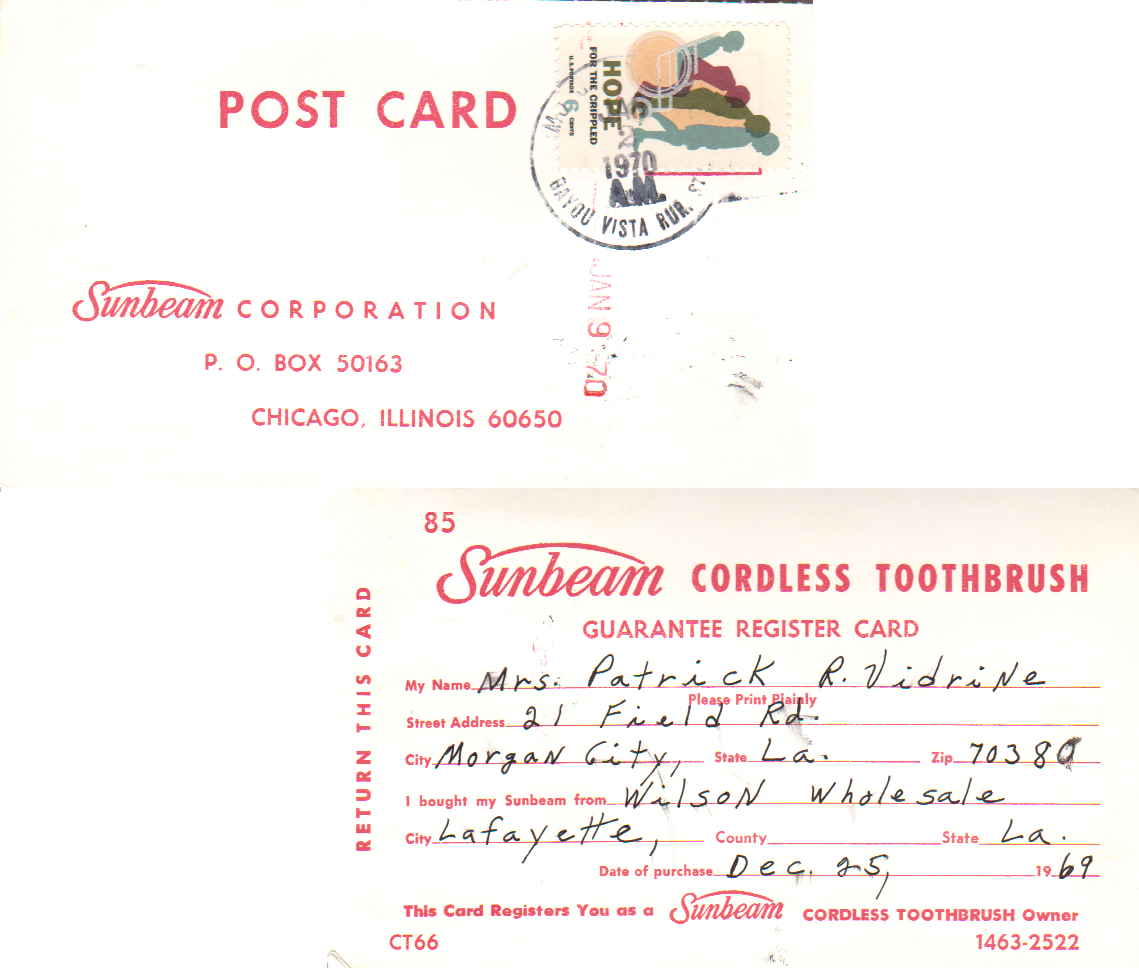 POST CARD
HOPE
FOR THE CRIPPLED
U.S. POSTAGE 6 CENTS
1970
A.M.
BAYOU VISTA RUR. ST
JAN 9 -70
Sunbeam CORPORATION
P. O. BOX 50163
CHICAGO, ILLINOIS 60650
85
Sunbeam CORDLESS TOOTHBRUSH
GUARANTEE REGISTER CARD
RETURN THIS CARD
My Name Mrs. Patrick R. Vidrine
Please Print Plainly
Street Address 21 Field Rd.
City Morgan City, State La. Zip 70380
I bought my Sunbeam from Wilson Wholesale
City Lafayette, County State La.
Date of purchase Dec. 25, 19 69
This Card Registers You as a Sunbeam CORDLESS TOOTHBRUSH Owner
CT66 1463-2522